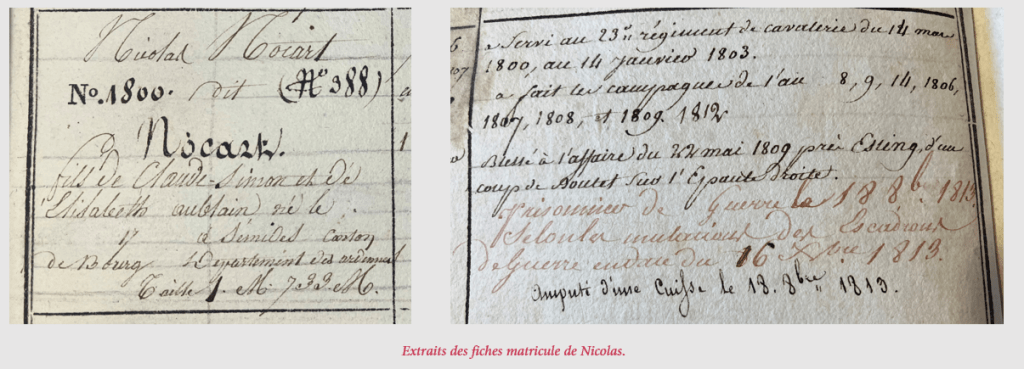 Nicolas Nocart
No. 1800. dit (No 388)
Nocart.
fils de Claude-Simon et de
Elisabeth aublain né le
17 à Sémides canton
de Bourg Département des ardennes
Taille 1. M. 733. M.
a Servi au 23e régiment de cavalerie du 14 mai
1800, au 14 janvier 1803.
a fait les campagnes de l'an 8, 9, 14, 1806,
1807, 1808, et 1809. 1812
Blessé à l'affaire du 22 mai 1809 près Esling, d'un
coup de Boulet sur l'Epaule Droite.
Prisonnier de Guerre le 18 8b 1813,
Selon les mutations des Escadrons
de Guerre en date du 16 Xbre 1813.
Amputé d'une Cuisse le 18. 8bre 1813.
Extraits des fiches matricule de Nicolas.